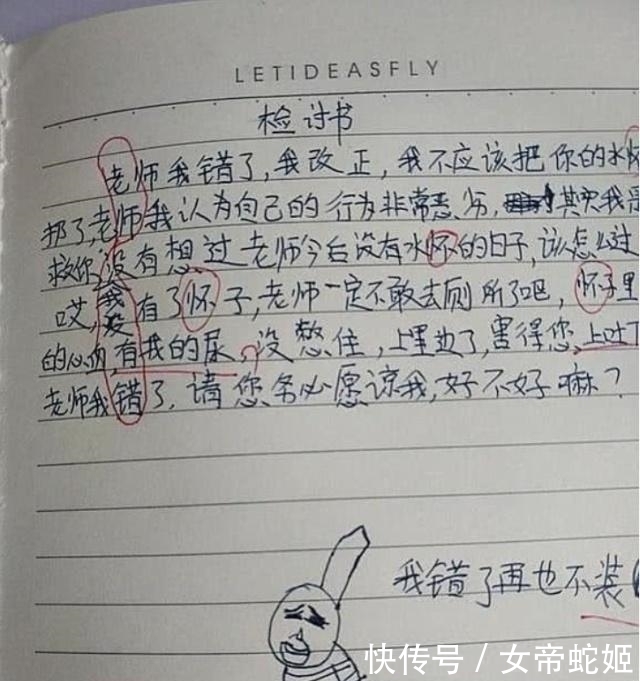 LETIDEASFLY
检讨书
老师我错了,我改正,我不应该把你的水怀
扔了,老师我认为自己的行为非常恶劣,其实我是
救你,没有想过老师今后没有水怀的日子,该怎么过
哎,我没有了怀子,老师一定不敢去厕所了吧,怀子里
的心血,有我的尿,没憋住,上里边了,害得您,上吐下
老师我错了,请您务必愿谅我,好不好嘛?
我错了再也不装
快传号/女帝蛇姬